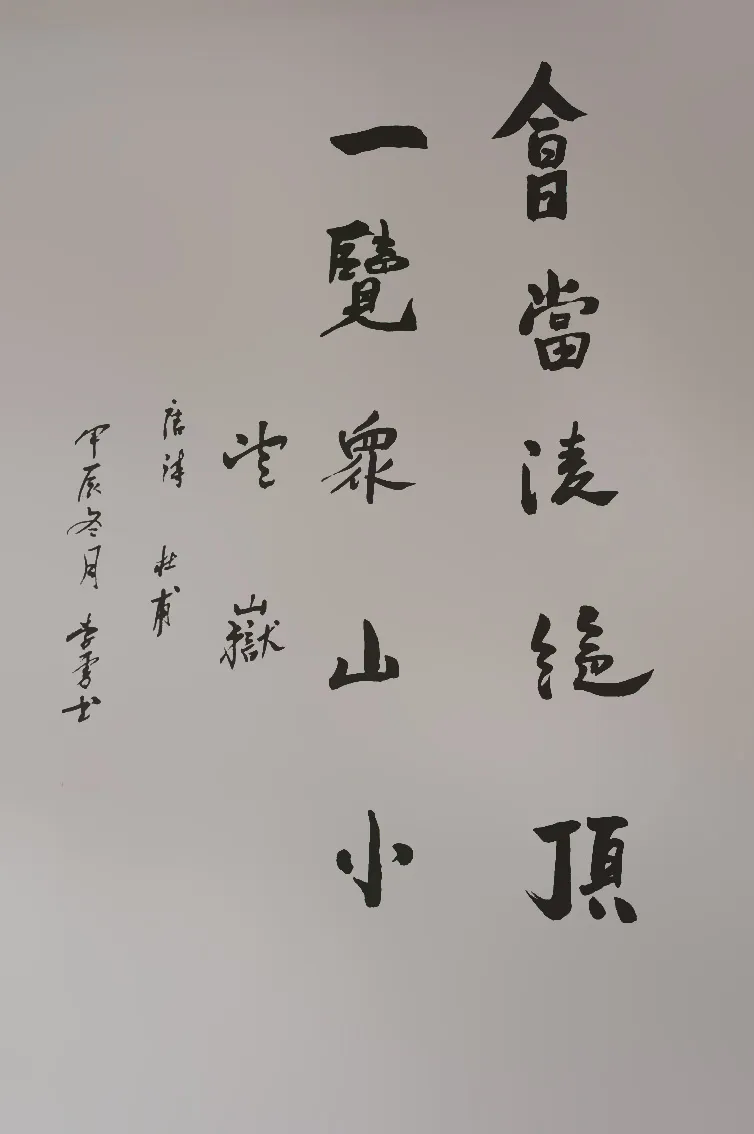 會當淩絕頂
一覽衆山小
望嶽
唐詩 杜甫
甲辰冬月 李 书